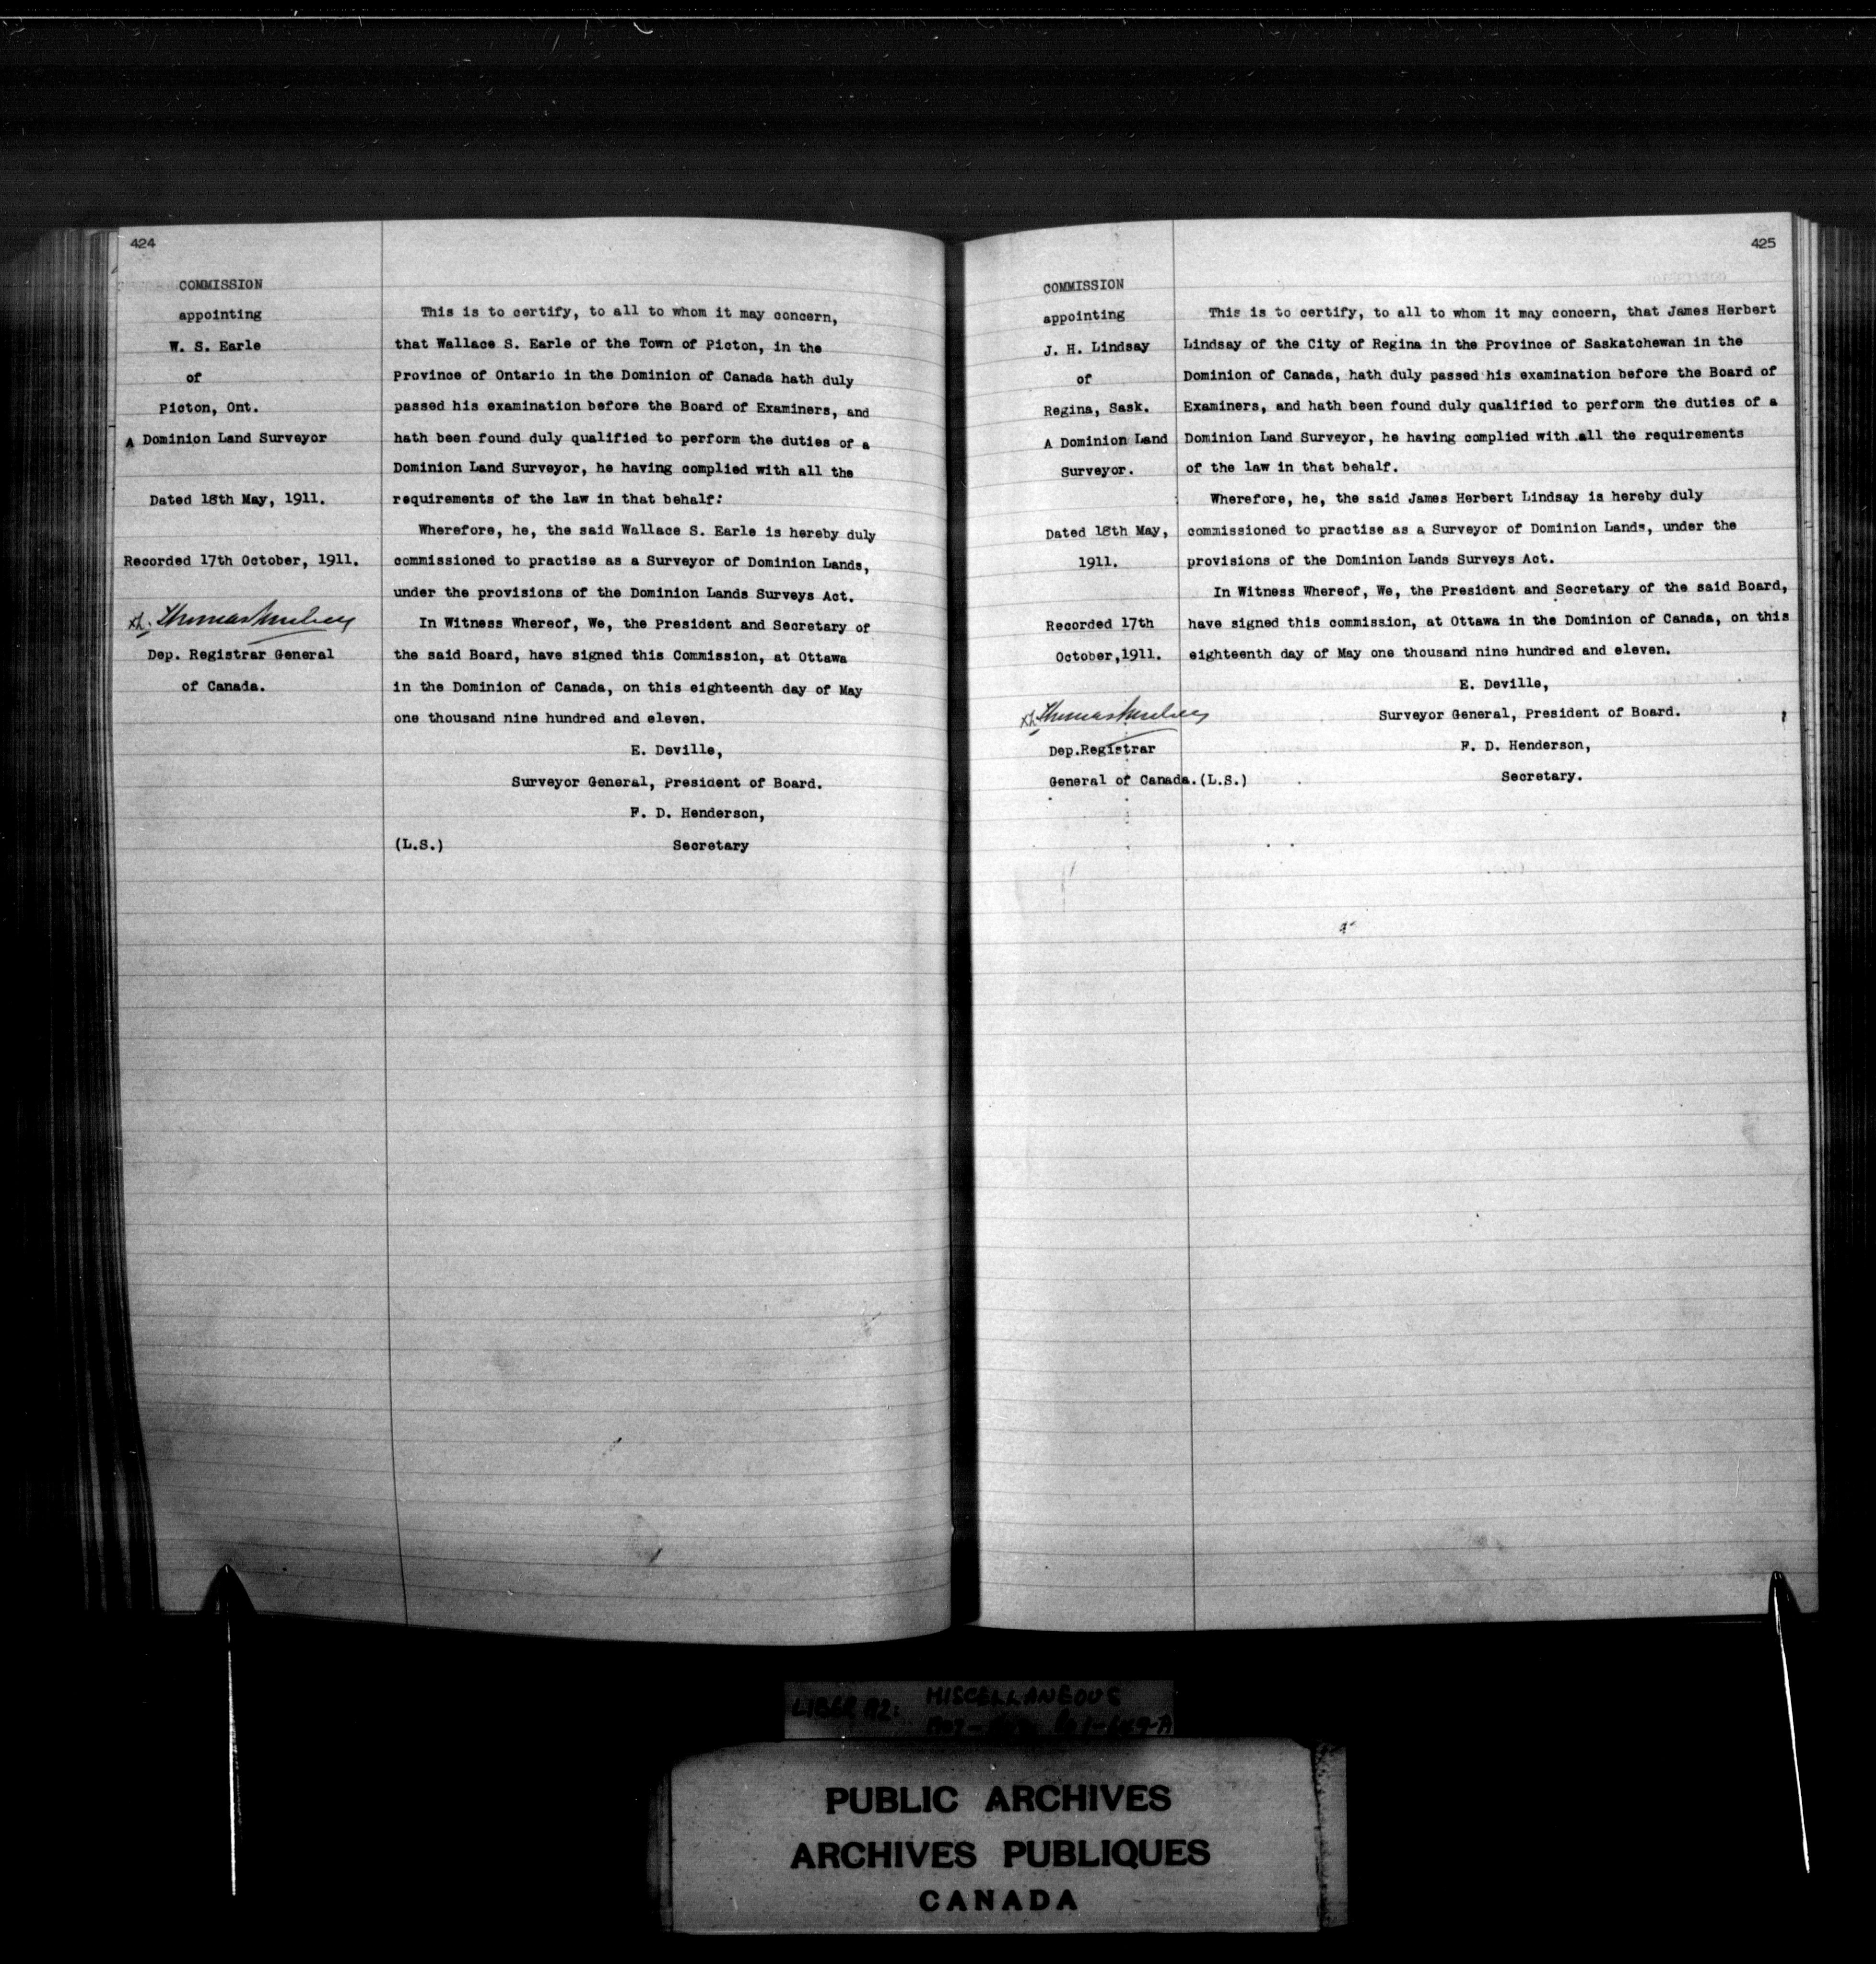 424
COMMISSION
appointing
W. S. Earle
of
Picton, Ont.
A Dominion Land Surveyor
Dated 18th May, 1911.
Recorded 17th October, 1911.
Dep. Registrar General
of Canada.
This is to certify, to all to whom it may concern,
that Wallace S. Earle of the Town of Picton, in the
Province of Ontario in the Dominion of Canada hath duly
passed his examination before the Board of Examiners, and
hath been found duly qualified to perform the duties of a
Dominion Land Surveyor, he having complied with all the
requirements of the law in that behalf:
Wherefore, he, the said Wallace S. Earle is hereby duly
commissioned to practise as a Surveyor of Dominion Lands,
under the provisions of the Dominion Lands Surveys Act.
In Witness Whereof, We, the President and Secretary of
the said Board, have signed this Commission, at Ottawa
in the Dominion of Canada, on this eighteenth day of May
one thousand nine hundred and eleven.
E. Deville,
Surveyor General, President of Board.
F. D. Henderson,
(L.S.) Secretary
425
COMMISSION
appointing
J. H. Lindsay
of
Regina, Sask.
A Dominion Land
Surveyor.
Dated 18th May,
1911.
Recorded 17th
October,1911.
Dep.Registrar
General of Canada.(L.S.)
This is to certify, to all to whom it may concern, that James Herbert
Lindsay of the City of Regina in the Province of Saskatchewan in the
Dominion of Canada, hath duly passed his examination before the Board of
Examiners, and hath been found duly qualified to perform the duties of a
Dominion Land Surveyor, he having complied with all the requirements
of the law in that behalf.
Wherefore, he, the said James Herbert Lindsay is hereby duly
commissioned to practise as a Surveyor of Dominion Lands, under the
provisions of the Dominion Lands Surveys Act.
In Witness Whereof, We, the President and Secretary of the said Board,
have signed this commission, at Ottawa in the Dominion of Canada, on this
eighteenth day of May one thousand nine hundred and eleven.
E. Deville,
Surveyor General, President of Board.
F. D. Henderson,
Secretary.
LIBER
MISCELLANEOUS
PUBLIC ARCHIVES
ARCHIVES PUBLIQUES
CANADA